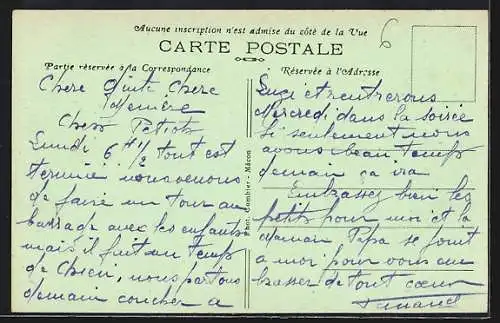 Aucune inscription n'est admise du côté de la Vue
CARTE POSTALE
6
Partie réservée à la Correspondance
Chere chere
Chers Petiots
Lundi 6 h 1/2 tout est
terminé nous venons
de faire un tour au
barrage avec les enfants
mais il fait un temps
de chien, nous partons
demain coucher a
Phot. Combier - Mâcon
Réservée à l'Adresse
et rentrerons
Mercredi dans la soirée
Si seulement nous
avons beau temps
demain ça ira
Embrassez bien les
petits pour moi et la
Papa se joint
a moi pour vous em
brasser de tout cœur
Fernand